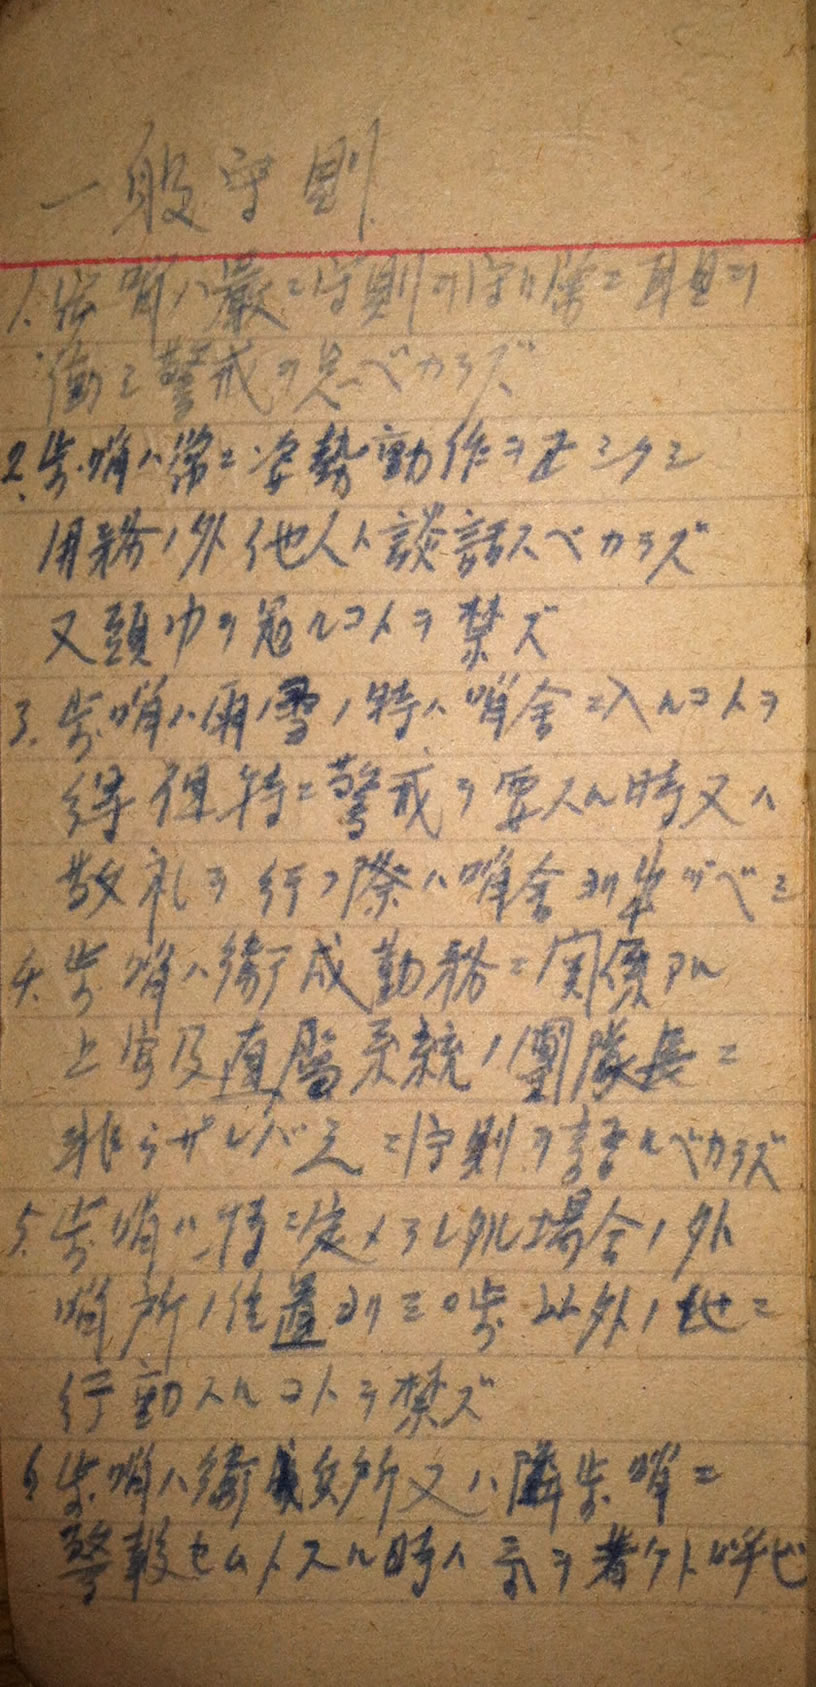 一般守則
1. 歩哨ハ厳ニ守則ヲ守リ常ニ耳目ヲ
働シ警戒ヲ怠ベカラズ
2. 歩哨ハ常ニ姿勢動作ヲ正シクシ
用務ノ外他人ト談話スベカラズ
又頭巾ヲ冠ルコトヲ禁ズ
3. 歩哨ハ雨雪ノ時ハ哨舎ニ入ルコトヲ
得但特ニ警戒ヲ要スル時又ハ
敬礼ヲ行フ際ハ哨舎ヨリ出ヅベシ
4. 歩哨ハ衛戍勤務ニ関係アル
上官及直属系統ノ團隊長ニ
非ラザレバ之ニ守則ヲ語ルベカラズ
5. 歩哨ハ特ニ定メラレタル場合ノ外
哨所ノ位置ヨリ三〇歩以外ノ地ニ
行動スルコトヲ禁ズ
6. 歩哨ハ衛兵所又ハ隣歩哨ニ
警報セムトスル時ハ氣ヲ着ケト呼ビ